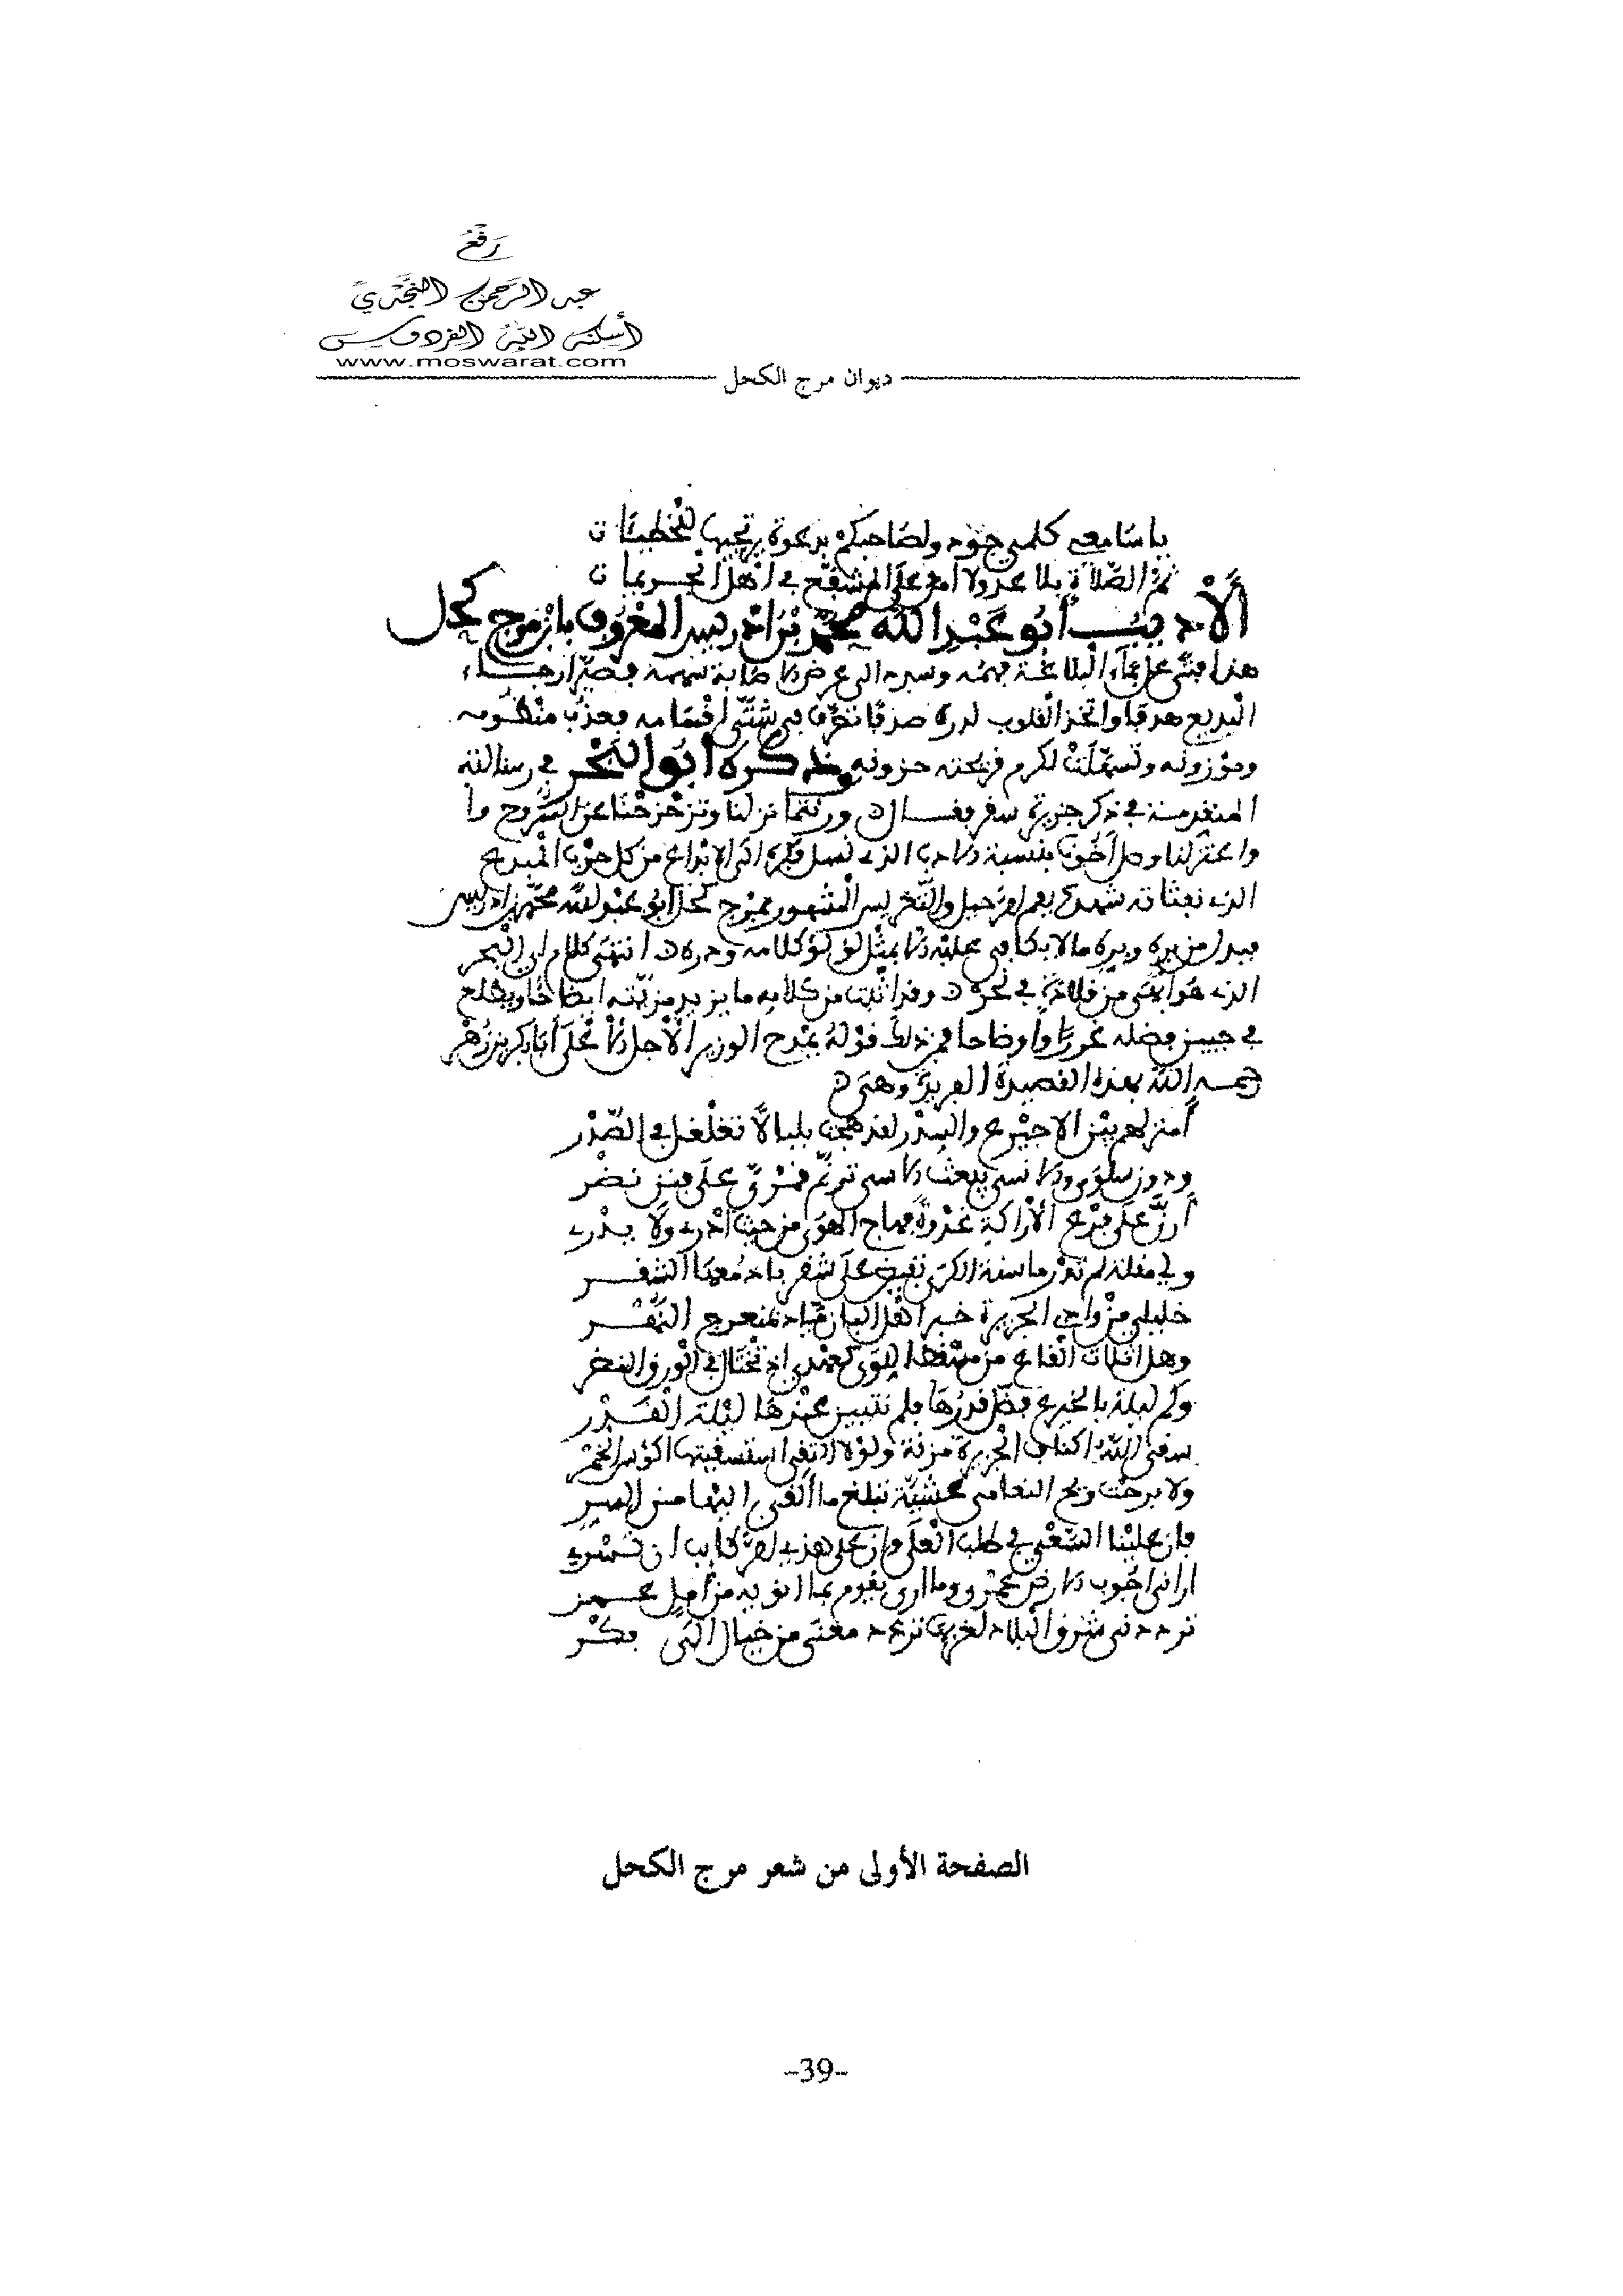 رَفْعُ
عبد الرحمن النجدي
أسكنه الله الفردوس
www.moswarat.com
ديوان مرج الكحل
يا سامعي كلمي جودوا لصاحبكم بدعوة يرتجيها للخطيئات
ثم الصلاة بلا عد ولا أمد على المشفع في أهل الجريمات
الأديب أبو عبد الله محمد بن ادريس المعروف بابن مرج كحل
هذا فتى على البلاغة فهمه وسدد الى غرض الاصابة سهمه فصير ارجاء
البديع هدفا واتخذ القلوب لدره صدفا تصرف في شتى اقسامه فعذب منظومه
وموزونه وتسهلت لكرم قريحته حزونه وذكره أبو البحر في رسالته
المتقدمة في ذكر جزيرة شقر فقال وربما نزلنا وتزحزحنا عن السروج
واعتزلنا وصل أخونا بنسبة الادب الذي نسل فكره الى الابداع من كل حدب المبدع
الذي نفثاته المشهور بمرج كحل ابو عبد الله محمد بن ادريس
فبدا من بره وبره مالا يكافى عليه الا بمثل لؤلؤ كلامه ودره انتهى كلام ابي البحر
الذي هو أبهى من قلائد في نحر وقد اثبت من كلامه ما يزيد مزيته ايضاحا ويطلع
في جبين فضله غررا وأوضاحا فمن ذلك قوله يمدح الوزير الأجل الأعلى أبا بكر بن زهر
رحمه الله بهذه القصيدة الفريدة وهي
أمنزلهم بين الاجيرع والسدر لقد هجت بلبالا تغلغل في الصدر
ودون سلوي والاسى يبعث الاسى ترنم قمري على فنن نضر
أرن على فرع الأراكة غدوة فهاج الهوى من حيث أدري ولا يدري
ولي مقلة لم تدر ما سنة الكرى تفيض على شفر بأدمعها الشفر
خليلي من وادي الجزيرة خبرا أظل البان مياد بمنعرج النهر
وهل اثلاث القاع من مسقط اللوى كعهدي اذ تختال في الورق النضر
وكم ليلة بالجزع فضل قدرها فلم نتبين عندها ليلة القدر
سقى الله اكناف الجزيرة مزنة ولولا التقى استسقيتها اكؤس الخمر
ولا برحت ريح النعامى عشية تبلغ ما ألقي اليها من السر
فان علينا السعي في طلب العلى وان على هذي الركائب ان تسري
اراني اجوب الارض عمري وما ارى يقوم بما انويه من أمل عمر
تردد في شرق البلاد وغربها تردد معنى من خيال الى فكر
الصفحة الأولى من شعر مرج الكحل
-39-